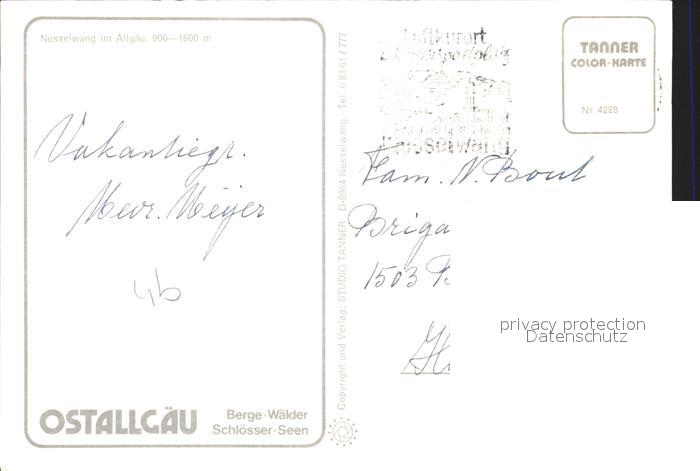 Nesselwang im Allgäu. 900—1600 m
Vakantiegr.
Mevr. Meijer
4b
OSTALLGÄU
Berge·Wälder
Schlösser·Seen
Copyright und Verlag: STUDIO TANNER · D-8964 Nesselwang · Tel. 0 83 61 / 777
Luftkurort
Nesselwang
TANNER
COLOR-KARTE
Nr. 4228
Fam. N. Bout
Briga
1503
privacy protection
Datenschutz